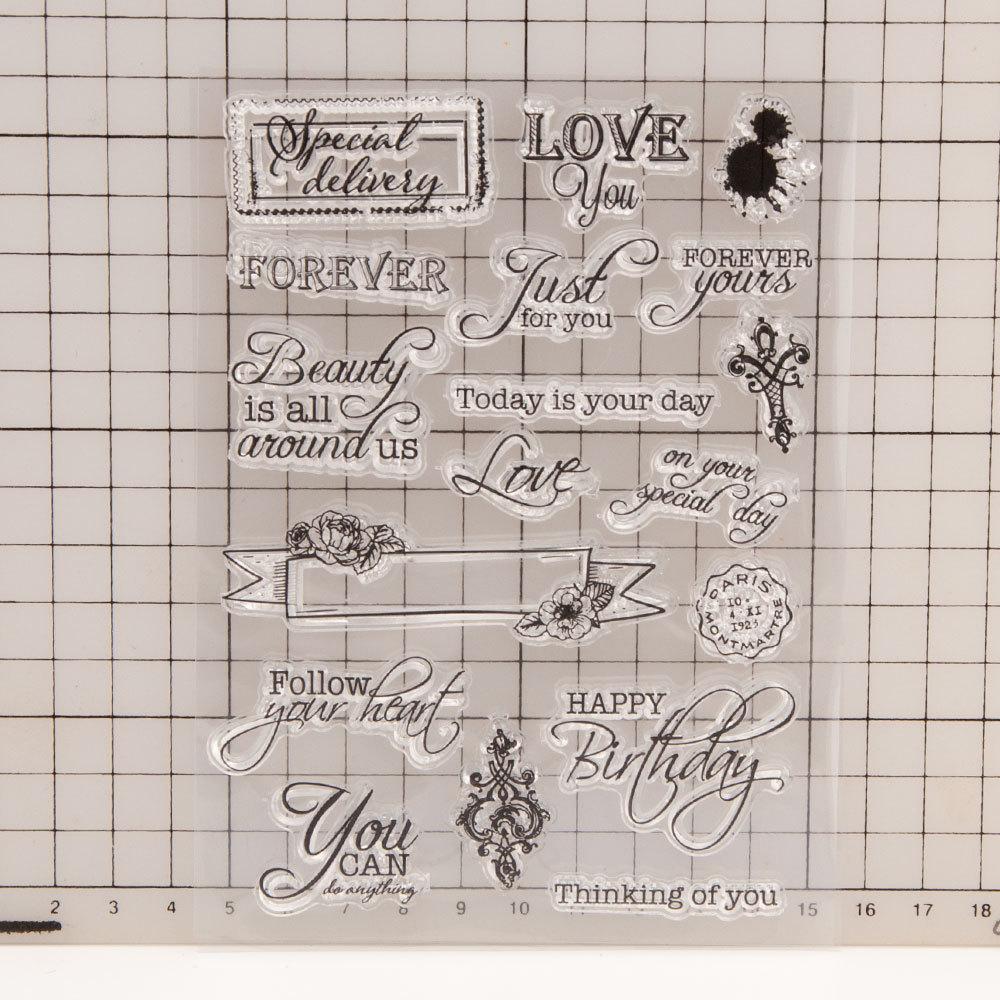 Special
delivery
LOVE
You
FOREVER
Just
for you
FOREVER
yours
Beauty
is all
around us
Today is your day
Love
on your
special day
PARIS
10 *
4 XI
1923
MONTMARTRE
Follow
your heart
HAPPY
Birthday
You
CAN
do anything
Thinking of you
2 3 4 5 7 8 9 10 15 16 17 18